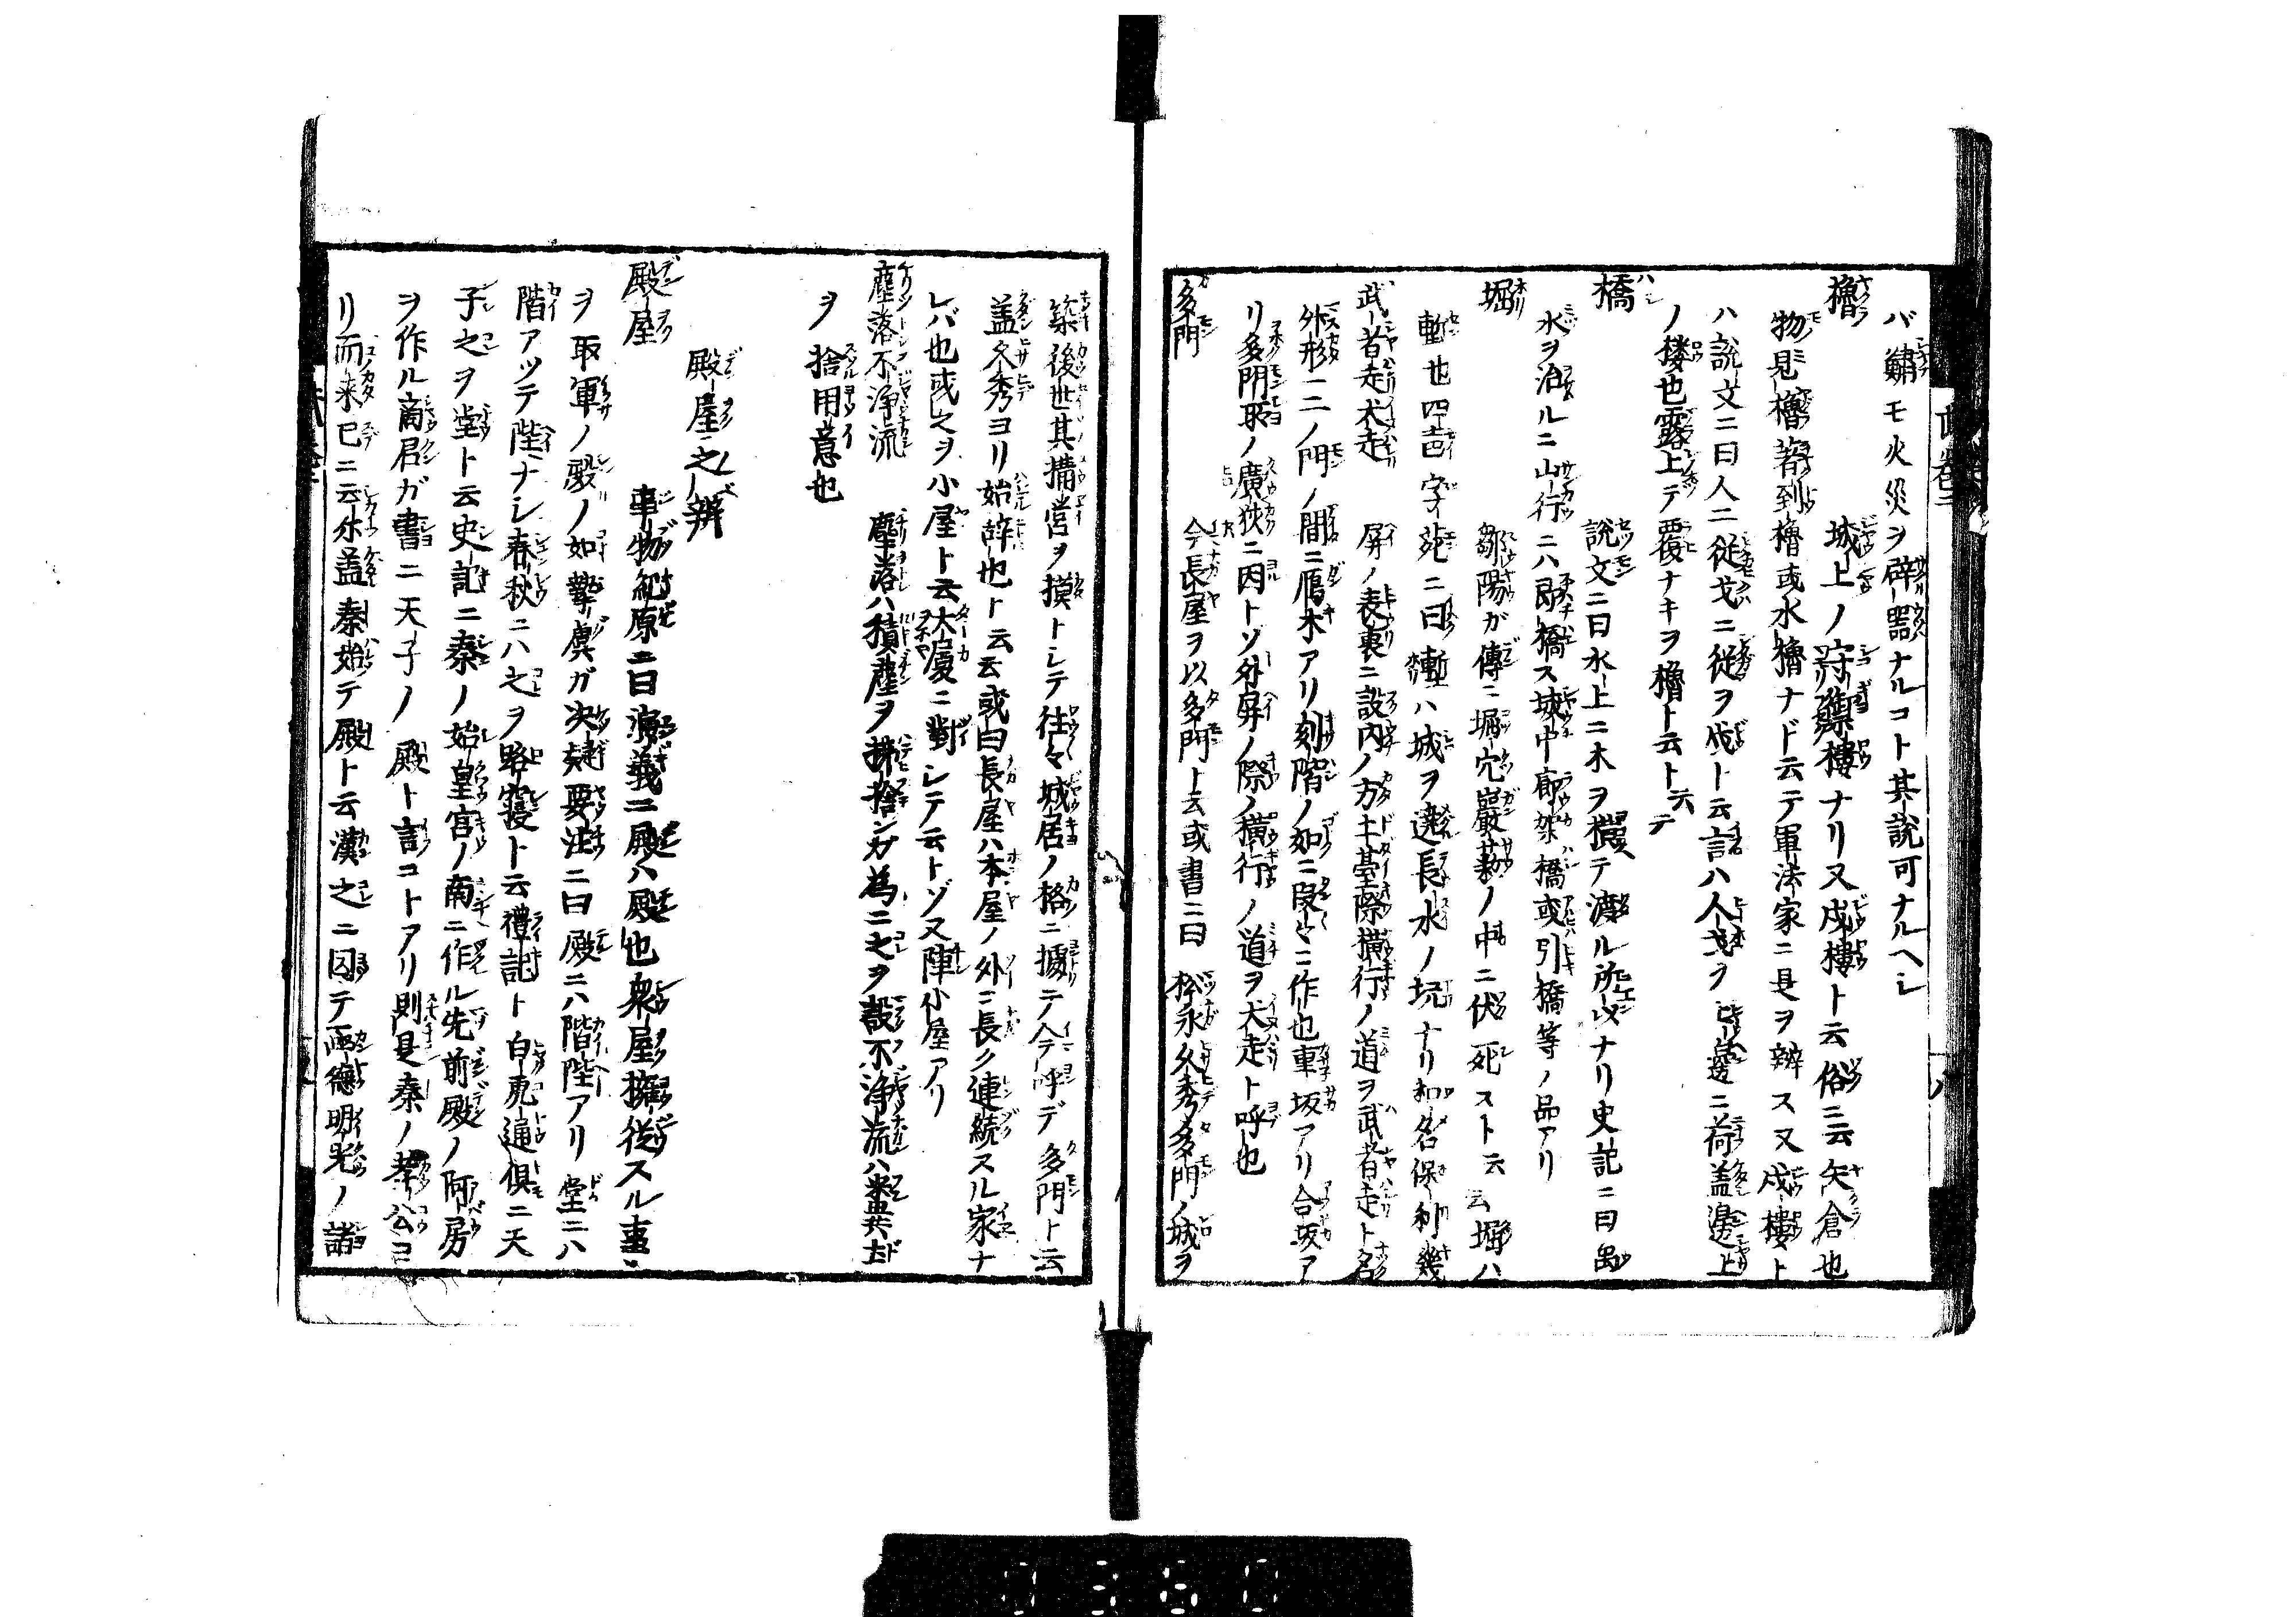 バ鱐モ火災ヲ辟噐ナルコト其説可ナルヘシ
櫓 城上ノ守禦樓ナリ又戍樓ト云俗ニ云矢倉也
物見櫓着到櫓或水櫓ナド云テ軍法家ニ是ヲ辨ス又戍樓ト
ハ説文ニ曰人ニ従戈ニ従ヲ戍ト云言ハ人戈ヲ 邊ニ荷盖邊上
ノ樓也露上テ覆ナキヲ櫓ト云ト云テ
橋 説文ニ曰水上ニ木ヲ横テ渡ル所以ナリ史記ニ曰禹
水ヲ治ルニ山行ニハ即橋ス城中廊架橋或引橋等ノ品アリ
堀 鄒陽ガ傳ニ堀穴巖藪ノ中ニ伏死スト云云堀ハ
塹也四声字苑ニ曰塹ハ城ヲ遶長水ノ坑ナリ和名保利幾
武者走犬走 屏ノ表裏ニ設内ノ方土臺際横行ノ道ヲ武者走ト名
外形二ノ門ノ間ニ鴈木アリ刻階ノ如ニ段々ニ作也車坂アリ合坂ア
リ多門取ノ廣狹ニ因トソ外屏ノ際ノ横行ノ道ヲ犬走ト呼也
多門 今長屋ヲ以多門ト云或書ニ曰松永久秀多門ノ城ヲ
築後世其搆営ヲ摸トシテ往々城居ノ格ニ據テ今呼デ多門ト云
盖久秀ヨリ始辞也ト云云或曰長屋ハ本屋ノ外ニ長ク連続スル家ナ
レバ也或之ヲ小屋ト云大廈ニ對シテ云トゾ又陣小屋アリ
塵落不浄流 塵落ハ積塵ヲ掃捨ンカ為ニ之ヲ設不浄流ハ糞共ド
ヲ捨用意也
殿屋之辨
殿屋 事物紀原ニ曰演義ニ殿ハ殿也衆屋擁従スル事
ヲ取軍ノ殿ノ如摯虞ガ决疑要注ニ曰殿ニハ階陛アリ堂ニハ
階アツテ陛ナシ春秋ニハ之ヲ路寝ト云禮記ト白虎通倶ニ天
子之ヲ堂ト云史記ニ秦ノ始皇宮ノ南ニ作ル先前殿ノ阿房
ヲ作ル商君ガ書ニ天子ノ殿ト言コトアリ則是秦ノ孝公已
リ而来已ニ云尓盖秦始テ殿ト云漢之ニ因テ画徳明光ノ諸